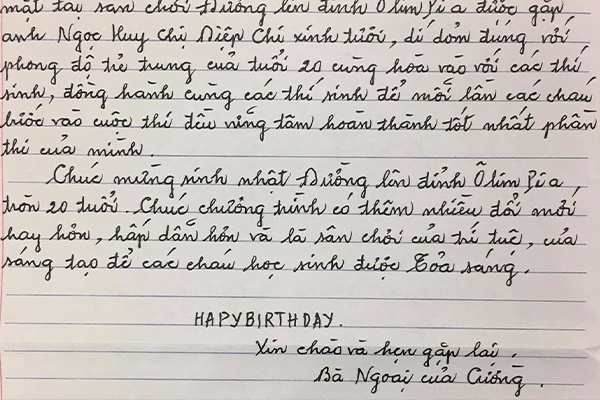 mặt tại sân chơi Đường lên đỉnh Ôlimpia được gặp
anh Ngọc Huy chị Diệp Chi xinh tươi, dí dỏm đúng với
phong độ trẻ trung của tuổi 20 cùng hòa vào với các thí
sinh, đồng hành cùng các thí sinh để mỗi lần các cháu
bước vào cuộc thi đều vững tâm hoàn thành tốt nhất phần
thi của mình.
Chúc mừng sinh nhật Đường lên đỉnh Ôlimpia,
tròn 20 tuổi. Chúc chương trình có thêm nhiều đổi mới
hay hơn, hấp dẫn hơn và là sân chơi của trí tuệ, của
sáng tạo để các cháu học sinh được Tỏa sáng.
HAPYBIRTHDAY.
Xin chào và hẹn gặp lại.
Bà Ngoại của Cường.